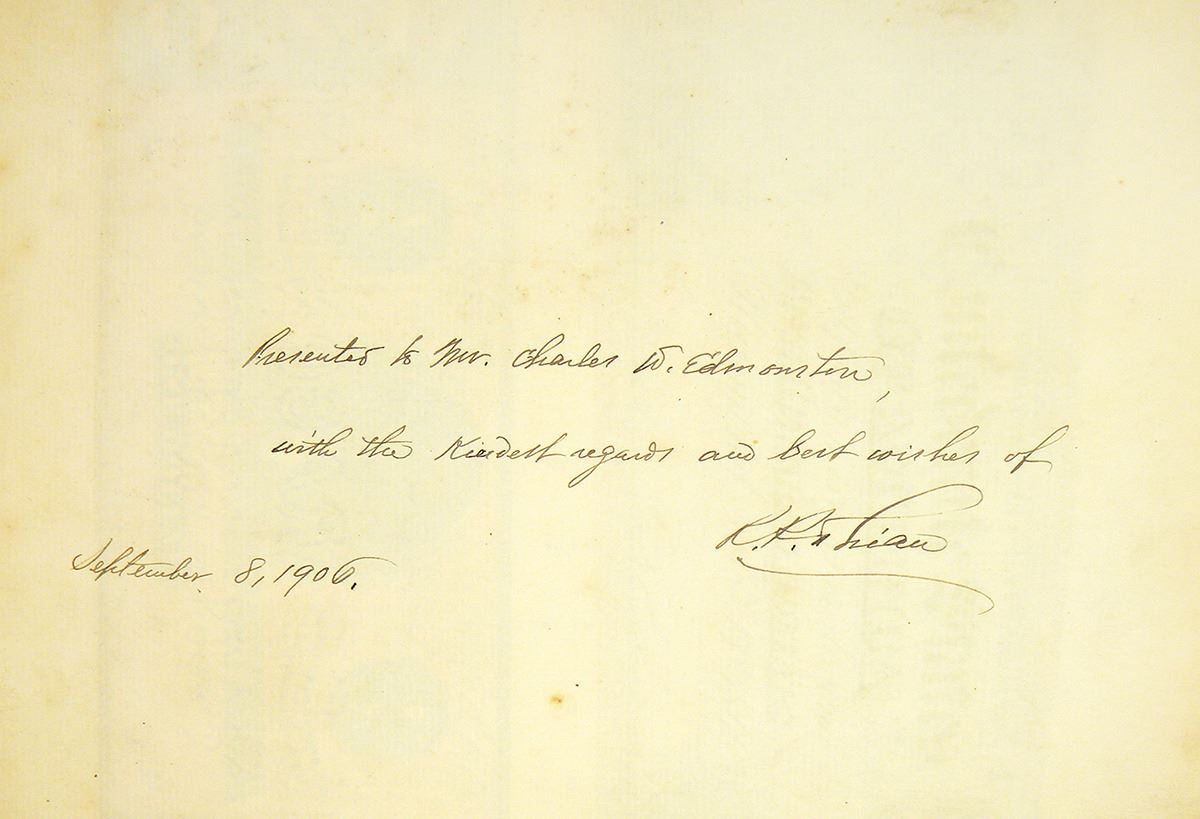 Presented to Mr. Charles W. Edmonston,
with the Kindest regards and best wishes of
September 8, 1906.